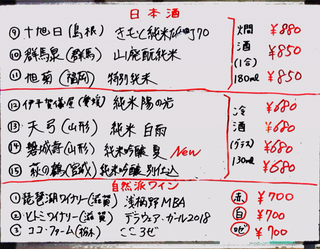 日本酒
⑨ 十旭日(島根) きもと純米 70
⑩ 群馬泉(群馬) 山廃酛純米
⑪ 旭菊(福岡) 特別純米
燗酒 (1合) 180ml
¥880
¥850
¥850
⑫ 伊予賀儀屋(愛媛) 純米
⑬ 天弓(山形) 純米 白雨
⑭ 磐城壽(山形) 純米吟醸 夏 New
⑮ 萩の鶴(宮城) 純米吟醸 別仕込
冷酒 (グラス) 130ml
¥680
¥680
¥680
¥680
自然派ワイン
① 琵琶湖ワイナリー(滋賀) 浅柄野MBA 赤 ¥700
② ヒトミワイナリー(滋賀) デラウェア・ガール2018 白 ¥700
③ ココ・ファーム(栃木) こころぜ ロゼ ¥700